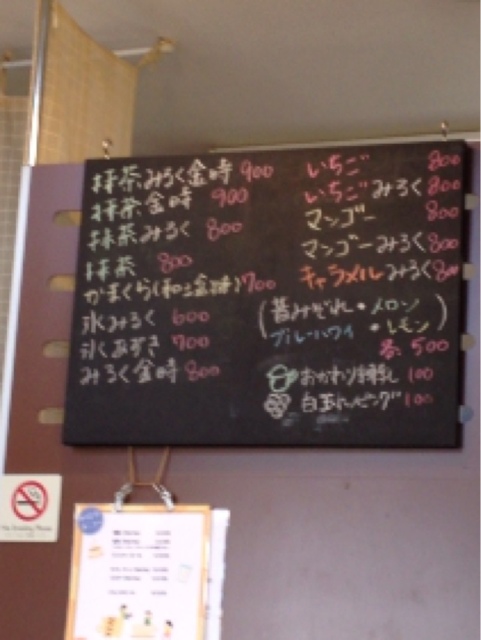 抹茶みるく金時 900
抹茶金時 900
抹茶みるく 800
抹茶 800
かまくら(和三金時)700
氷みるく 600
氷あずき 700
みるく金時 800
いちご 800
いちごみるく 800
マンゴー 800
マンゴーみるく 800
キャラメルみるく 800
(昔みぞれ・メロン
ブルーハワイ・レモン)
各 500
おかわり練乳 100
白玉トッピング 100
No Smoking Please